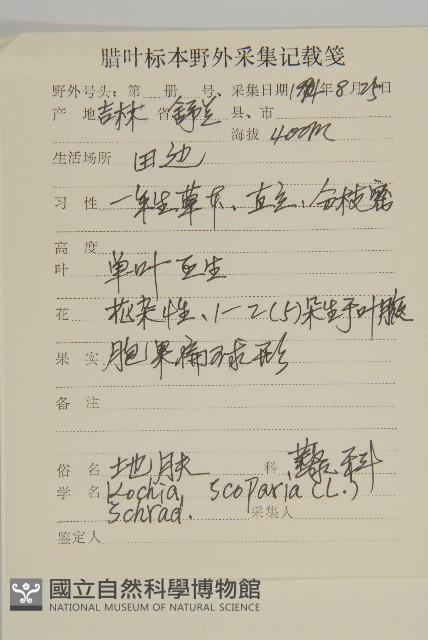 腊叶标本野外采集记载笺
野外号头：第 册 号、采集日期 年8月25日
产 地 吉林 省 舒兰 县、市
海拔 400m
生活场所 田边
习 性 一年生草本、直立、分枝密
高 度
叶 单叶互生
花 花杂性、1-2(5)朵生于叶腋
果 实 胞果扁球形
备 注
俗 名 地肤 科 藜科
学 名 Kochia Scoparia (L.)
Schrad. 采集人
鉴定人
國立自然科學博物館
NATIONAL MUSEUM OF NATURAL SCIENCE